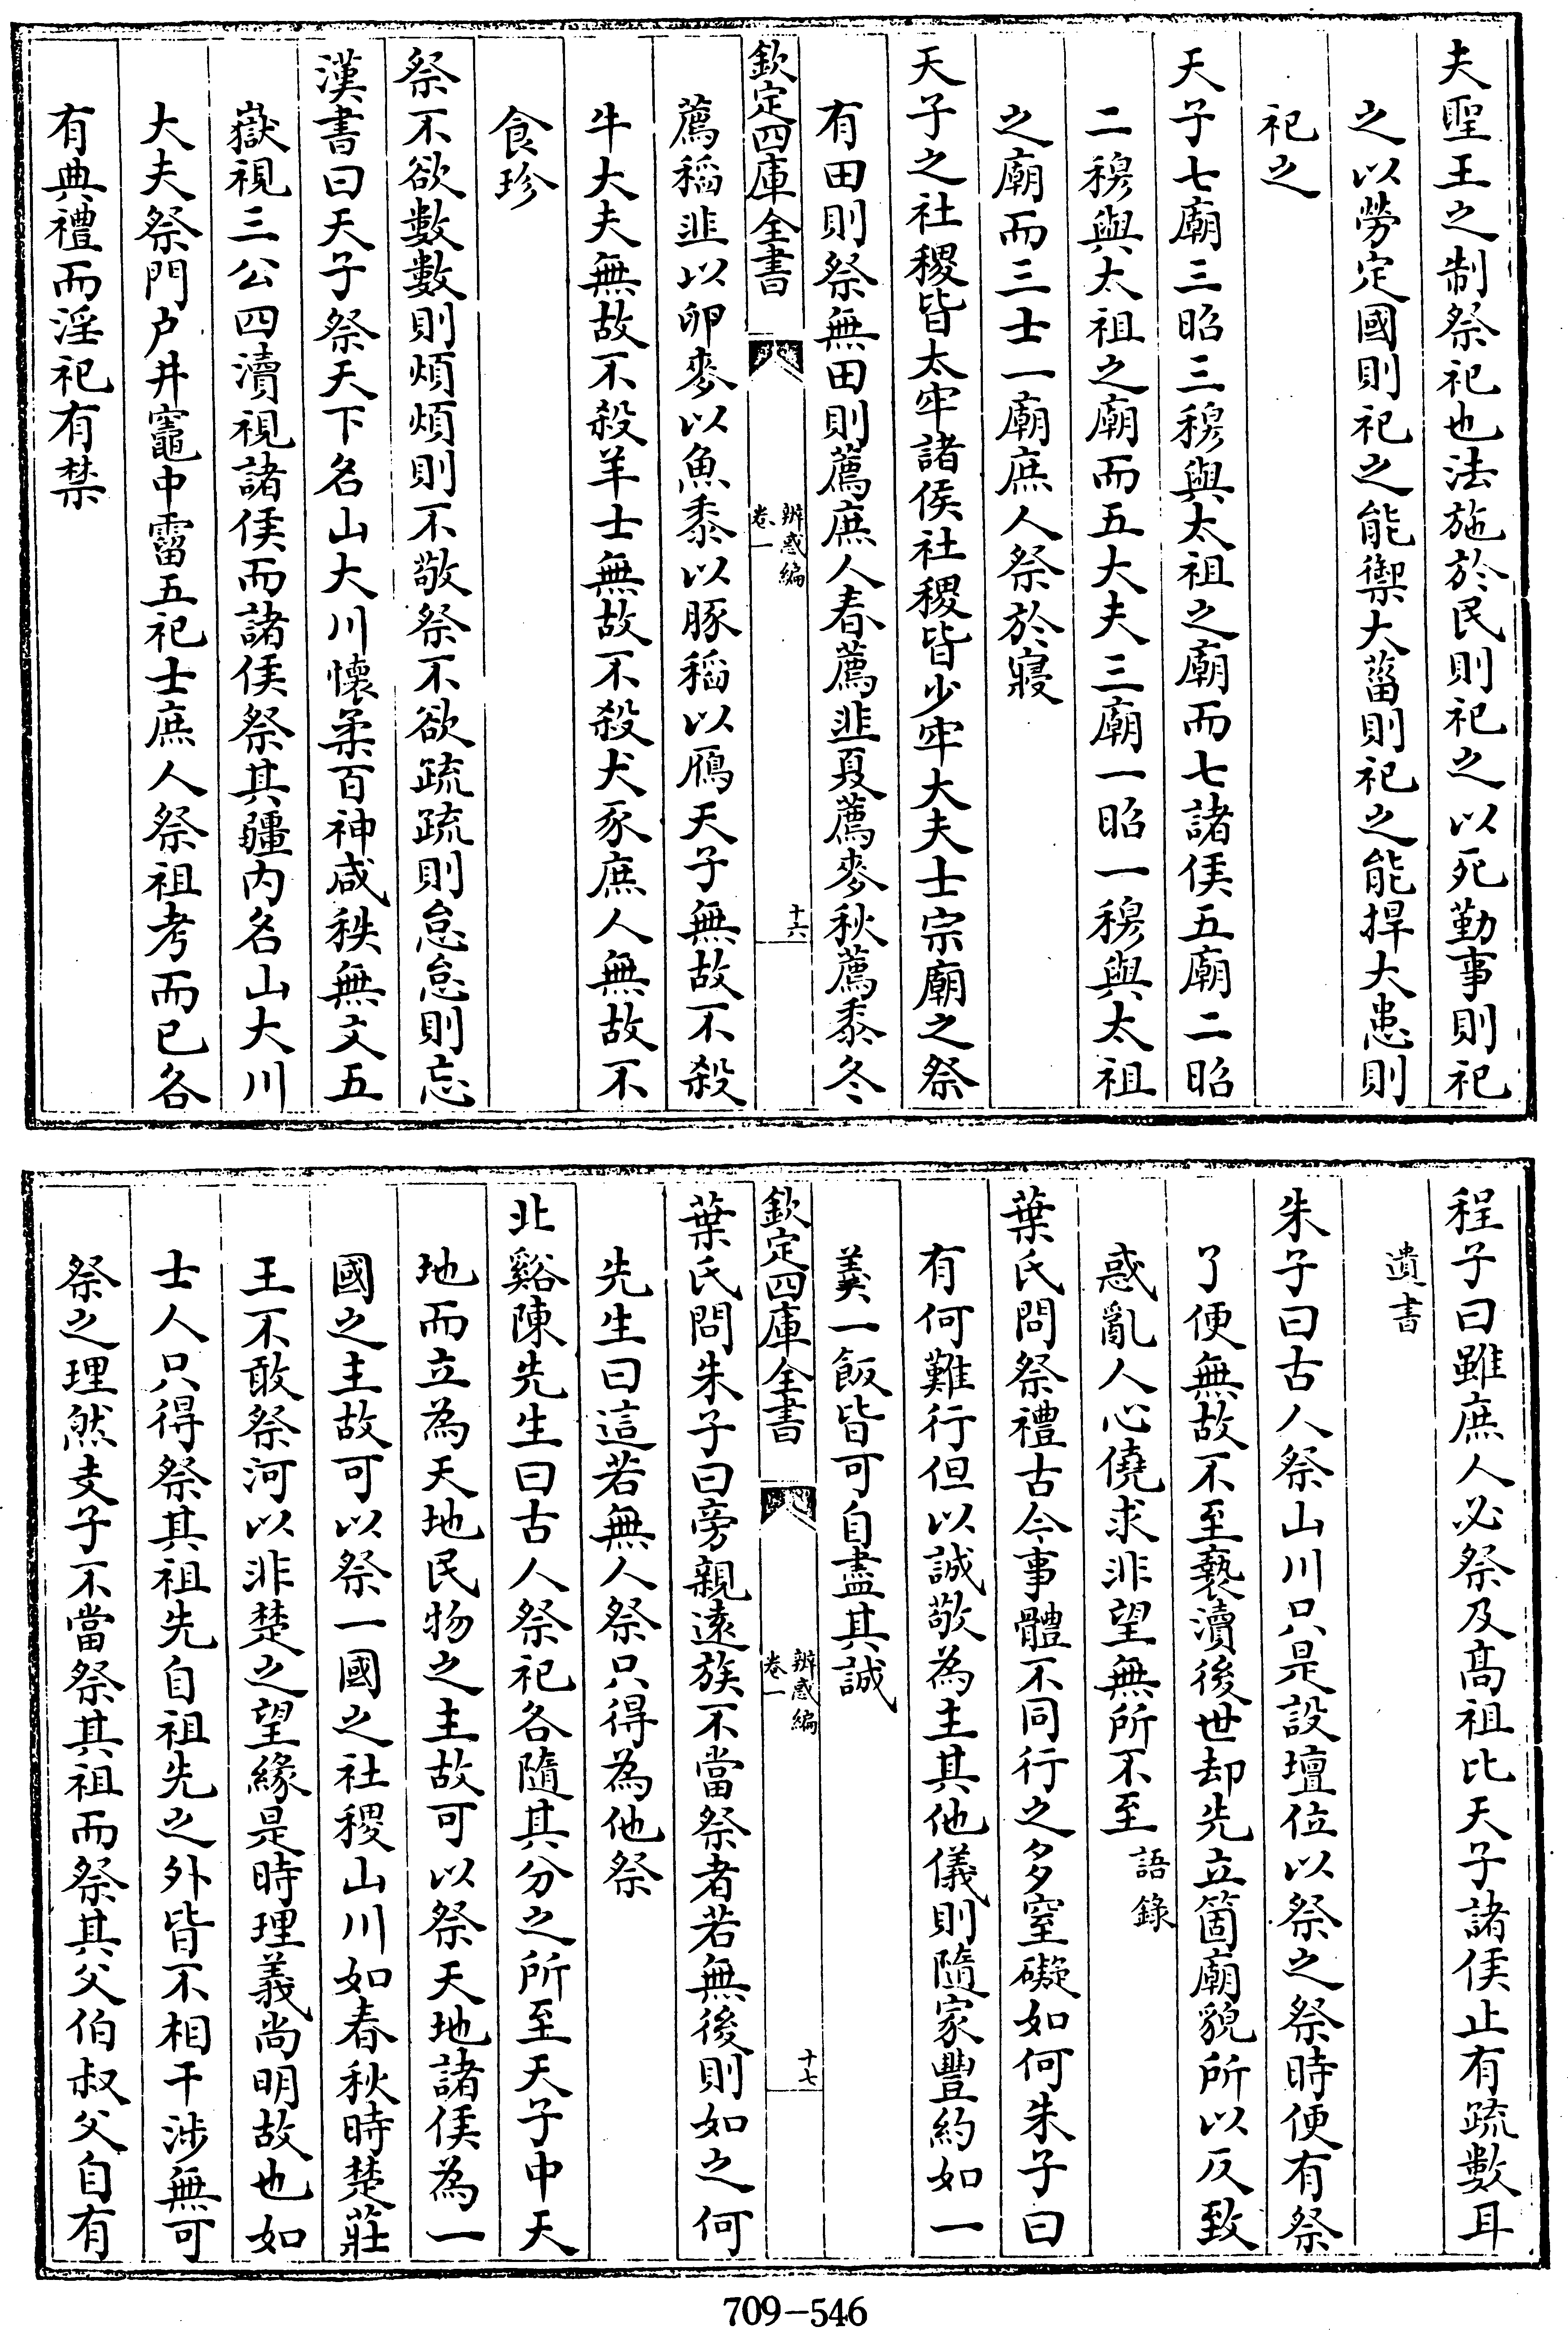 夫聖王之制祭祀也法施於民則祀之以死勤事則祀
之以勞定國則祀之能禦大菑則祀之能捍大患則
祀之
天子七廟三昭三穆與太祖之廟而七諸侯五廟二昭
二穆與太祖之廟而五大夫三廟一昭一穆與太祖
之廟而三士一廟庶人祭於寢
天子之社稷皆太牢諸侯社稷皆少牢大夫士宗廟之祭
有田則祭無田則薦庶人春薦韭夏薦麥秋薦黍冬
欽定四庫全書
辨惑編
卷一
十六
薦稻韭以卵麥以魚黍以豚稻以鴈天子無故不殺
牛大夫無故不殺羊士無故不殺犬豕庶人無故不
食珍
祭不欲數數則煩煩則不敬祭不欲疏疏則怠怠則忘
漢書曰天子祭天下名山大川懷柔百神咸秩無文五
嶽視三公四瀆視諸侯而諸侯祭其疆内名山大川
大夫祭門户井竈中霤五祀士庶人祭祖考而已各
有典禮而淫祀有禁
程子曰雖庶人必祭及髙祖比天子諸侯止有疏數耳
遺書
朱子曰古人祭山川只是設壇位以祭之祭時便有祭
了便無故不至褻瀆後世却先立箇廟貌所以反致
惑亂人心僥求非望無所不至語錄
葉氏問祭禮古今事體不同行之多窒礙如何朱子曰
有何難行但以誠敬為主其他儀則隨家豐約如一
羮一飯皆可自盡其誠
欽定四庫全書
辨惑編
卷一
十七
葉氏問朱子曰旁親遠族不當祭者若無後則如之何
先生曰這若無人祭只得為他祭
北谿陳先生曰古人祭祀各隨其分之所至天子中天
地而立為天地民物之主故可以祭天地諸侯為一
國之主故可以祭一國之社稷山川如春秋時楚莊
王不敢祭河以非楚之望緣是時理義尚明故也如
士人只得祭其祖先自祖先之外皆不相干渉無可
祭之理然支子不當祭其祖而祭其父伯叔父自有
709-546